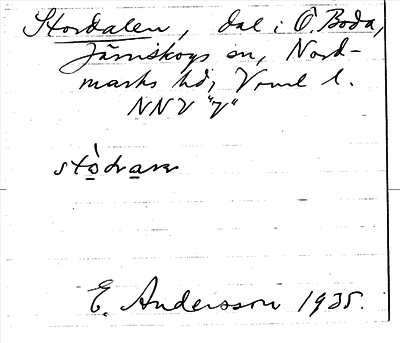 Stordalen, dal i Ö. Boda,
Järnskogs sn, Nord-
marks hd, Vrml l.
NNV "7"
E. Andersson 1935.